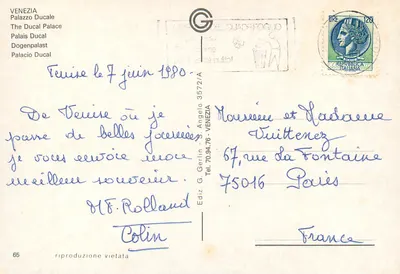 VENEZIA
Palazzo Ducale
The Ducal Palace
Palais Ducal
Dogenpalast
Palacio Ducal
Venise le 7 juin 1980.
De Venise où je
passe de belles journées
je vous envoie mon
meilleur souvenir.
Colin
66
riproduzione vietata
Ediz. G. Gerlin - S. Angelo 3572/A
Tel. 70.94.76 - VENEZIA
120
Monsieur et Madame
67, rue La Fontaine
75016 Paris
France